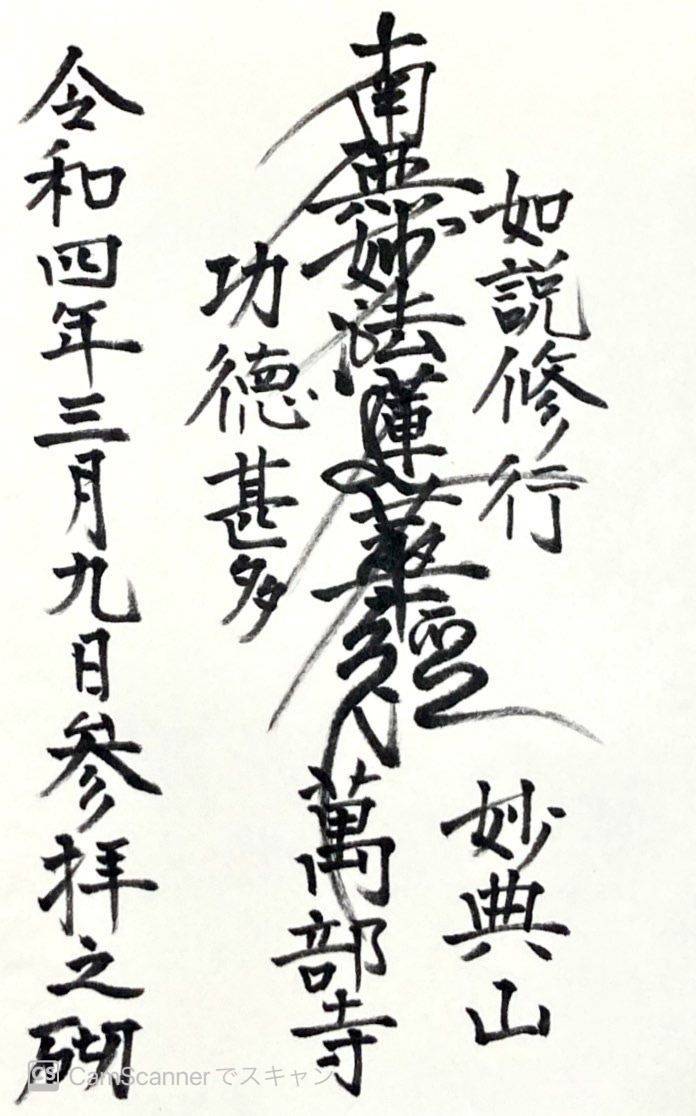 如説修行
南無妙法蓮華經
功徳甚多
妙典山
萬部寺
令和四年三月九日参拝之砌
CS CamScannerでスキャン